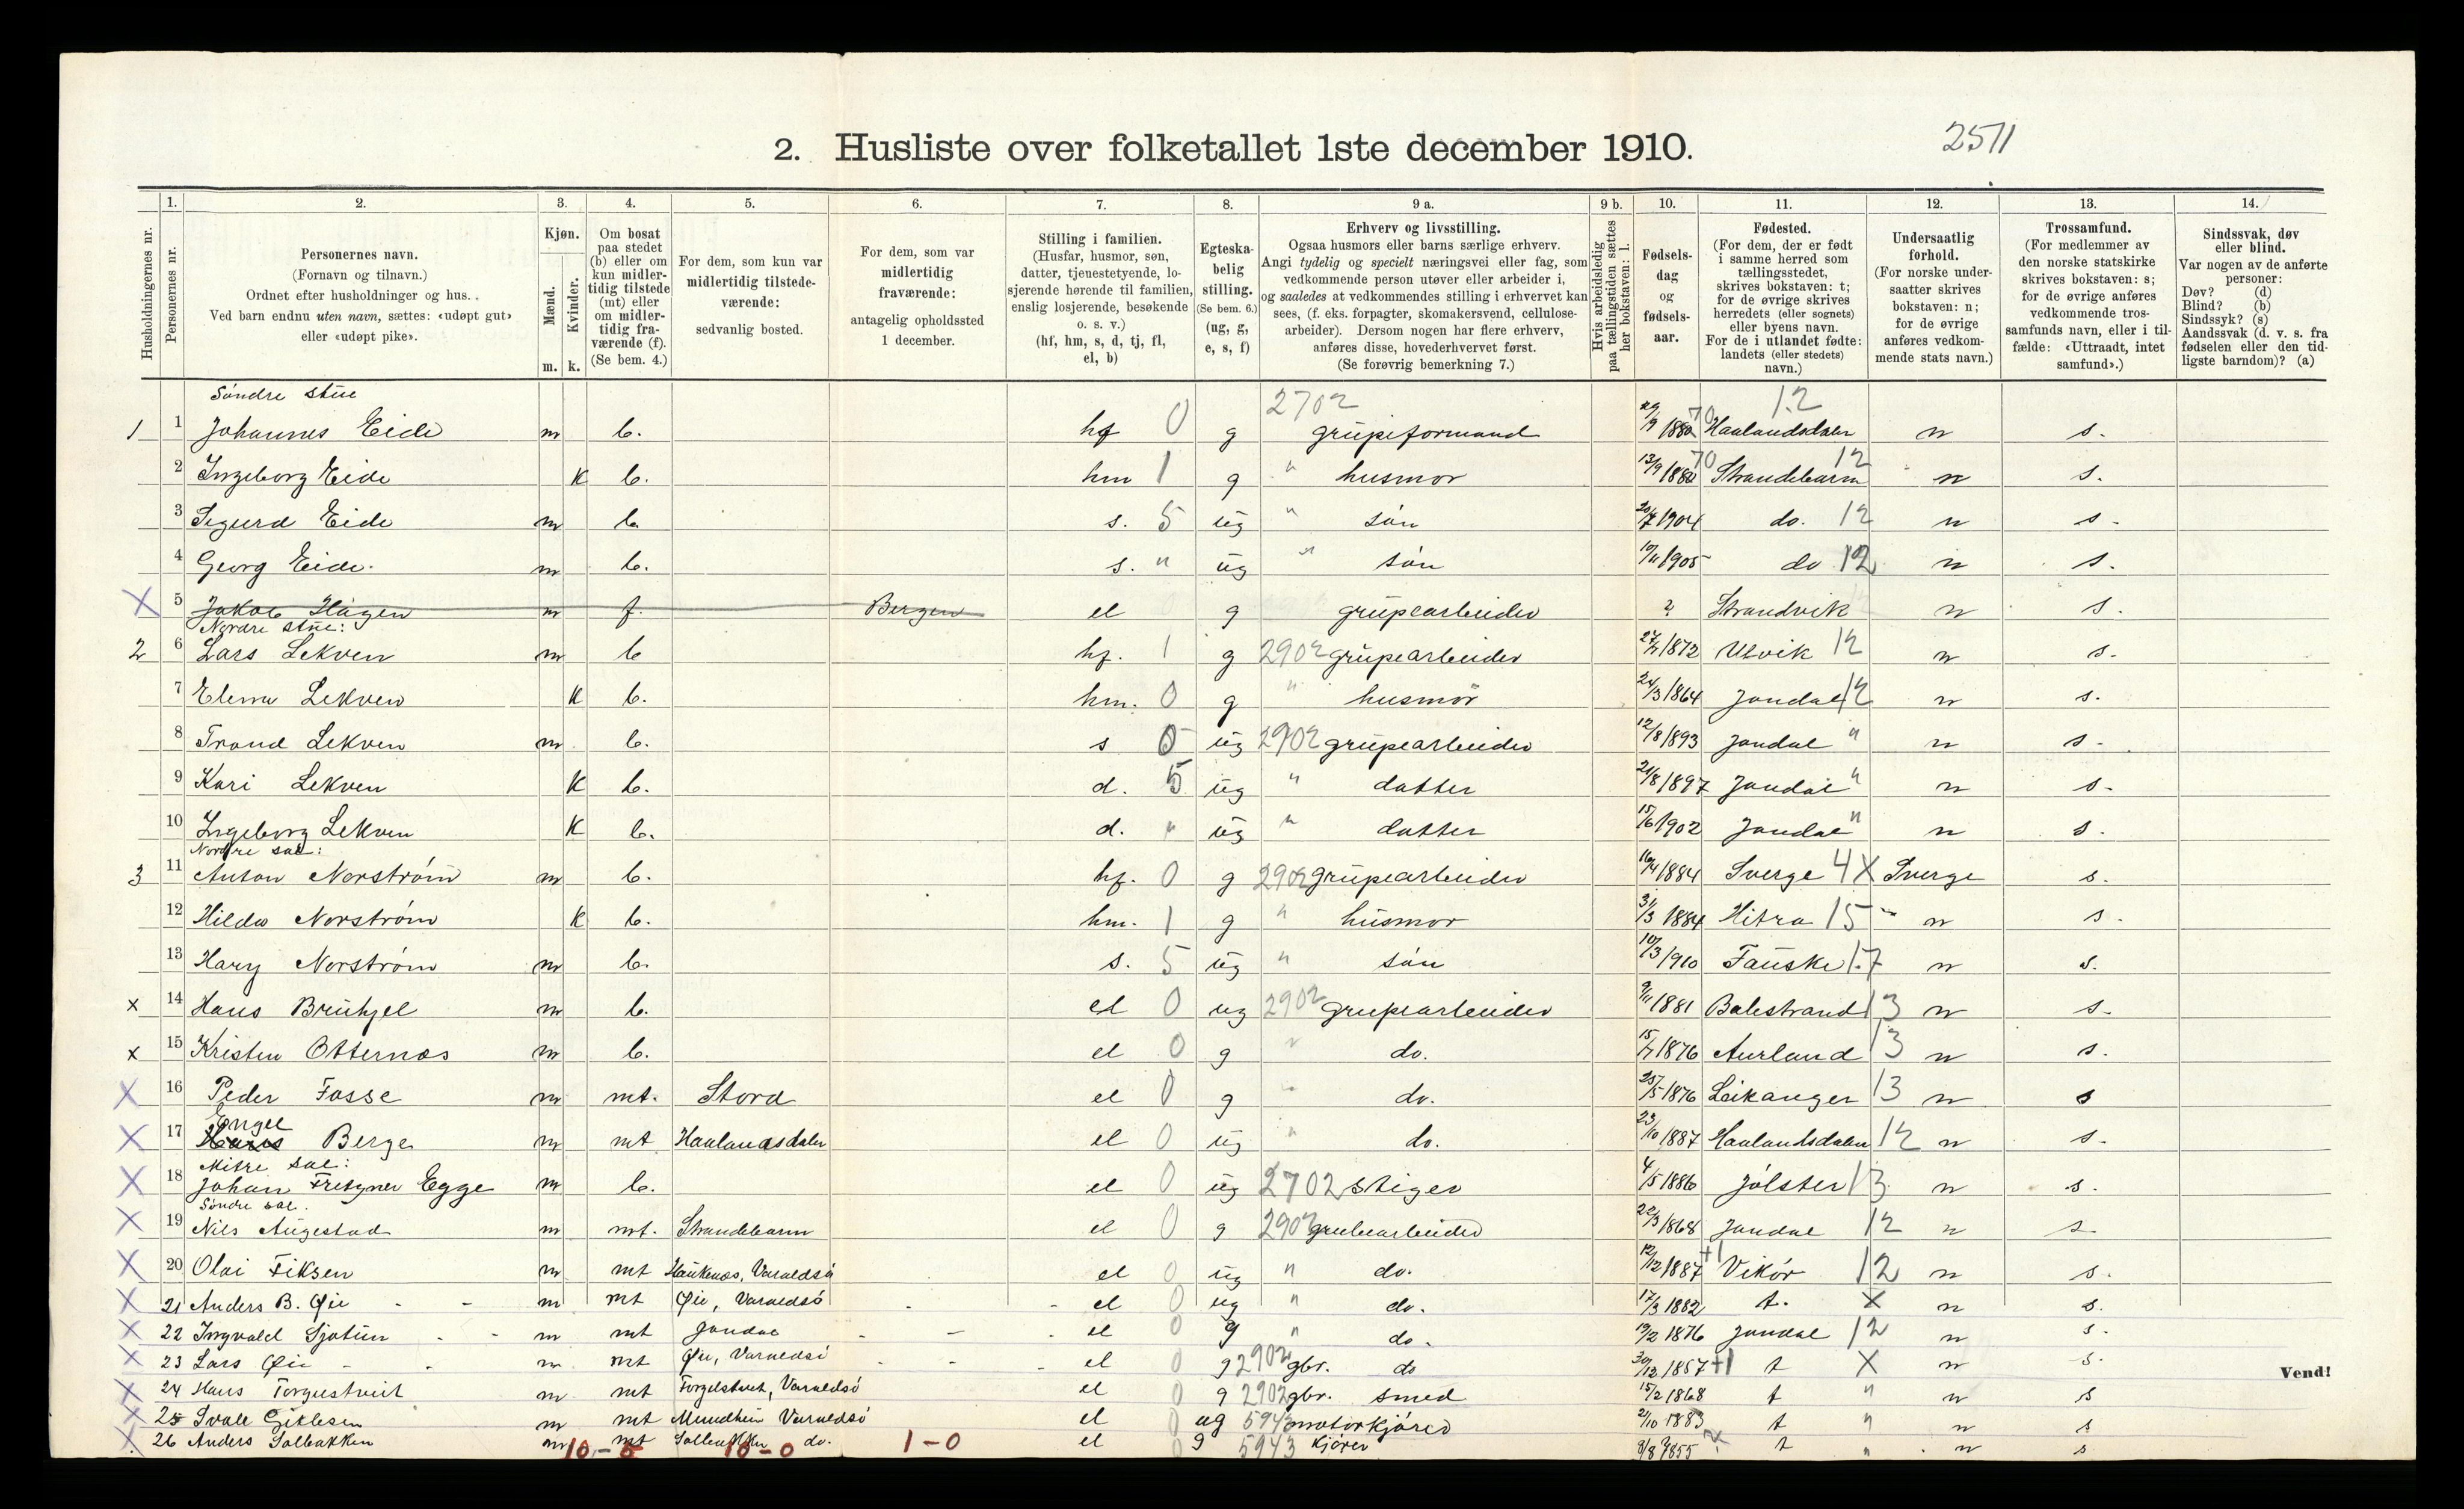 2. Husliste over folketallet 1ste december 1910.
2511
1. 2. 3. 4. 5. 6. 7. 8. 9 a. 9 b. 10. 11. 12. 13. 14.
Husholdningernes nr.
Personernes nr.
Personernes navn.
(Fornavn og tilnavn.)
Ordnet efter husholdninger og hus.
Ved barn endnu uten navn, sættes: «udøpt gut»
eller «udøpt pike».
Kjøn.
Mænd.
Kvinder.
m. k.
Om bosat
paa stedet
(b) eller om
kun midler-
tidig tilstede
(mt) eller
om midler-
tidig fra-
værende (f).
(Se bem. 4.)
For dem, som kun var
midlertidig tilstede-
værende:
sedvanlig bosted.
For dem, som var
midlertidig
fraværende:
antagelig opholdssted
1 december.
Stilling i familien.
(Husfar, husmor, søn,
datter, tjenestetyende, lo-
sjerende hørende til familien,
enslig losjerende, besøkende
o. s. v.)
(hf, hm, s, d, tj, fl,
el, b)
Egteska-
belig
stilling.
(Se bem. 6.)
(ug, g,
e, s, f)
Erhverv og livsstilling.
Ogsaa husmors eller barns særlige erhverv.
Angi tydelig og specielt næringsvei eller fag, som
vedkommende person utøver eller arbeider i,
og saaledes at vedkommendes stilling i erhvervet kan
sees, (f. eks. forpagter, skomakersvend, cellulose-
arbeider). Dersom nogen har flere erhverv,
anføres disse, hovederhvervet først.
(Se forøvrig bemerkning 7.)
Hvis arbeidsledig
paa tællingstiden sættes
her bokstaven: l.
Fødsels-
dag
og
fødsels-
aar.
Fødested.
(For dem, der er født
i samme herred som
tællingsstedet,
skrives bokstaven: t;
for de øvrige skrives
herredets (eller sognets)
eller byens navn.
For de i utlandet fødte:
landets (eller stedets)
navn.)
Undersaatlig
forhold.
(For norske under-
saatter skrives
bokstaven: n;
for de øvrige
anføres vedkom-
mende stats navn.)
Trossamfund.
(For medlemmer av
den norske statskirke
skrives bokstaven: s;
for de øvrige anføres
vedkommende tros-
samfunds navn, eller i til-
fælde: «Uttraadt, intet
samfund».)
Sindssvak, døv
eller blind.
Var nogen av de anførte
personer:
Døv? (d)
Blind? (b)
Sindssyk? (s)
Aandssvak (d. v. s. fra
fødselen eller den tid-
ligste barndom)? (a)
Søndre stue 2702 12
1 1 Johannes Eide m b. hf 0 g grupeformand Haalandsdalen n s.
2 Ingeborg Eide k b. hm 1 g " husmor 13/9 Strandebarm 12 n s.
3 Sigurd Eide m b. s. 5 ug " søn 1904 do. 12 n s.
4 Georg Eide m b. s. " ug " søn 10/11 1905 do 12 n s.
X 5 Jakob Hagen m f. Bergen el g grupearbeider ? Strandvik n s.
Nordre stue:
2 6 Lars Lekven m b hf. 1 g 2902 grupearbeider 1872 Ulvik 12 n s.
7 Elena Lekven k b. hm. 0 g " husmor 24/3 1864 Jondal 12 n s.
8 Trond Lekven m b. s 0 ug 2902 grupearbeider 12/8 1893 Jondal " n s.
9 Kari Lekven k b. d. 5 ug " datter 21/8 1897 Jondal " n s.
10 Ingeborg Lekven k b. d. " ug " datter 15/6 1902 Jondal " n s.
Nordre sal:
3 11 Anton Norstrøm m b. hf. 0 g 2902 grupearbeider 16/4 1884 Sverge 4X Sverge s.
12 Hilda Norstrøm k b. hm. 1 g " husmor 31/3 1884 Hitra 15 n s.
13 Hary Norstrøm m b. s. 5 ug " søn 10/3 1910 Fauske 17 n s.
x 14 Hans Bruhjel m b. el 0 ug 2902 grupearbeider 9/11 1881 Balestrand 13 n s.
x 15 Kristen Otternes m b. el 0 g " do. 1876 Aurland 13 n s.
X 16 Peder Fosse m mt. Stord el 0 g " do. 25/5 1876 Leikanger 13 n s
X 17 Engel Berge m mt Haalandsdalen el 0 ug " do. 23/10 1887 Haalandsdalen 12 n s.
Mitre sal:
X 18 Johan Egge m b. el 0 ug 2702 Stiger 4/5 1886 Jølster 13 n s.
Søndre sal.
X 19 Nils Augestad m mt. Strandebarm el 0 g 2902 grubearbeider 22/3 1868 Jondal 12 n s.
X 20 Olai Fiksen m mt Haukenes, Varaldsø el 0 ug " do. 12/12 1887 +1 Vikør 12 n s.
X 21 Anders B. Øie m mt Øie, Varaldsø el 0 ug " do. 17/3 1882 t. X n s.
X 22 Ingvald Sjotun m mt Jondal el 0 g " do. 19/2 1876 Jondal 12 n s.
X 23 Lars Øie m mt Øie, Varaldsø el 0 g 2902 gbr. do 30/12 1857 +1 t X n s.
X 24 Hans m mt Varaldsø el 0 g 2902 gbr. smed 15/2 1868 t " n s
X 25 m mt Mundheim Varaldsø el 0 ug 5943 motorkjører 2/10 1883 t " n s
X 26 Anders Solbakken m mt Solbakken do. el 0 g 5943 kjører 8/8 1855 t " n s
10-5 10-0 1-0
Vend!